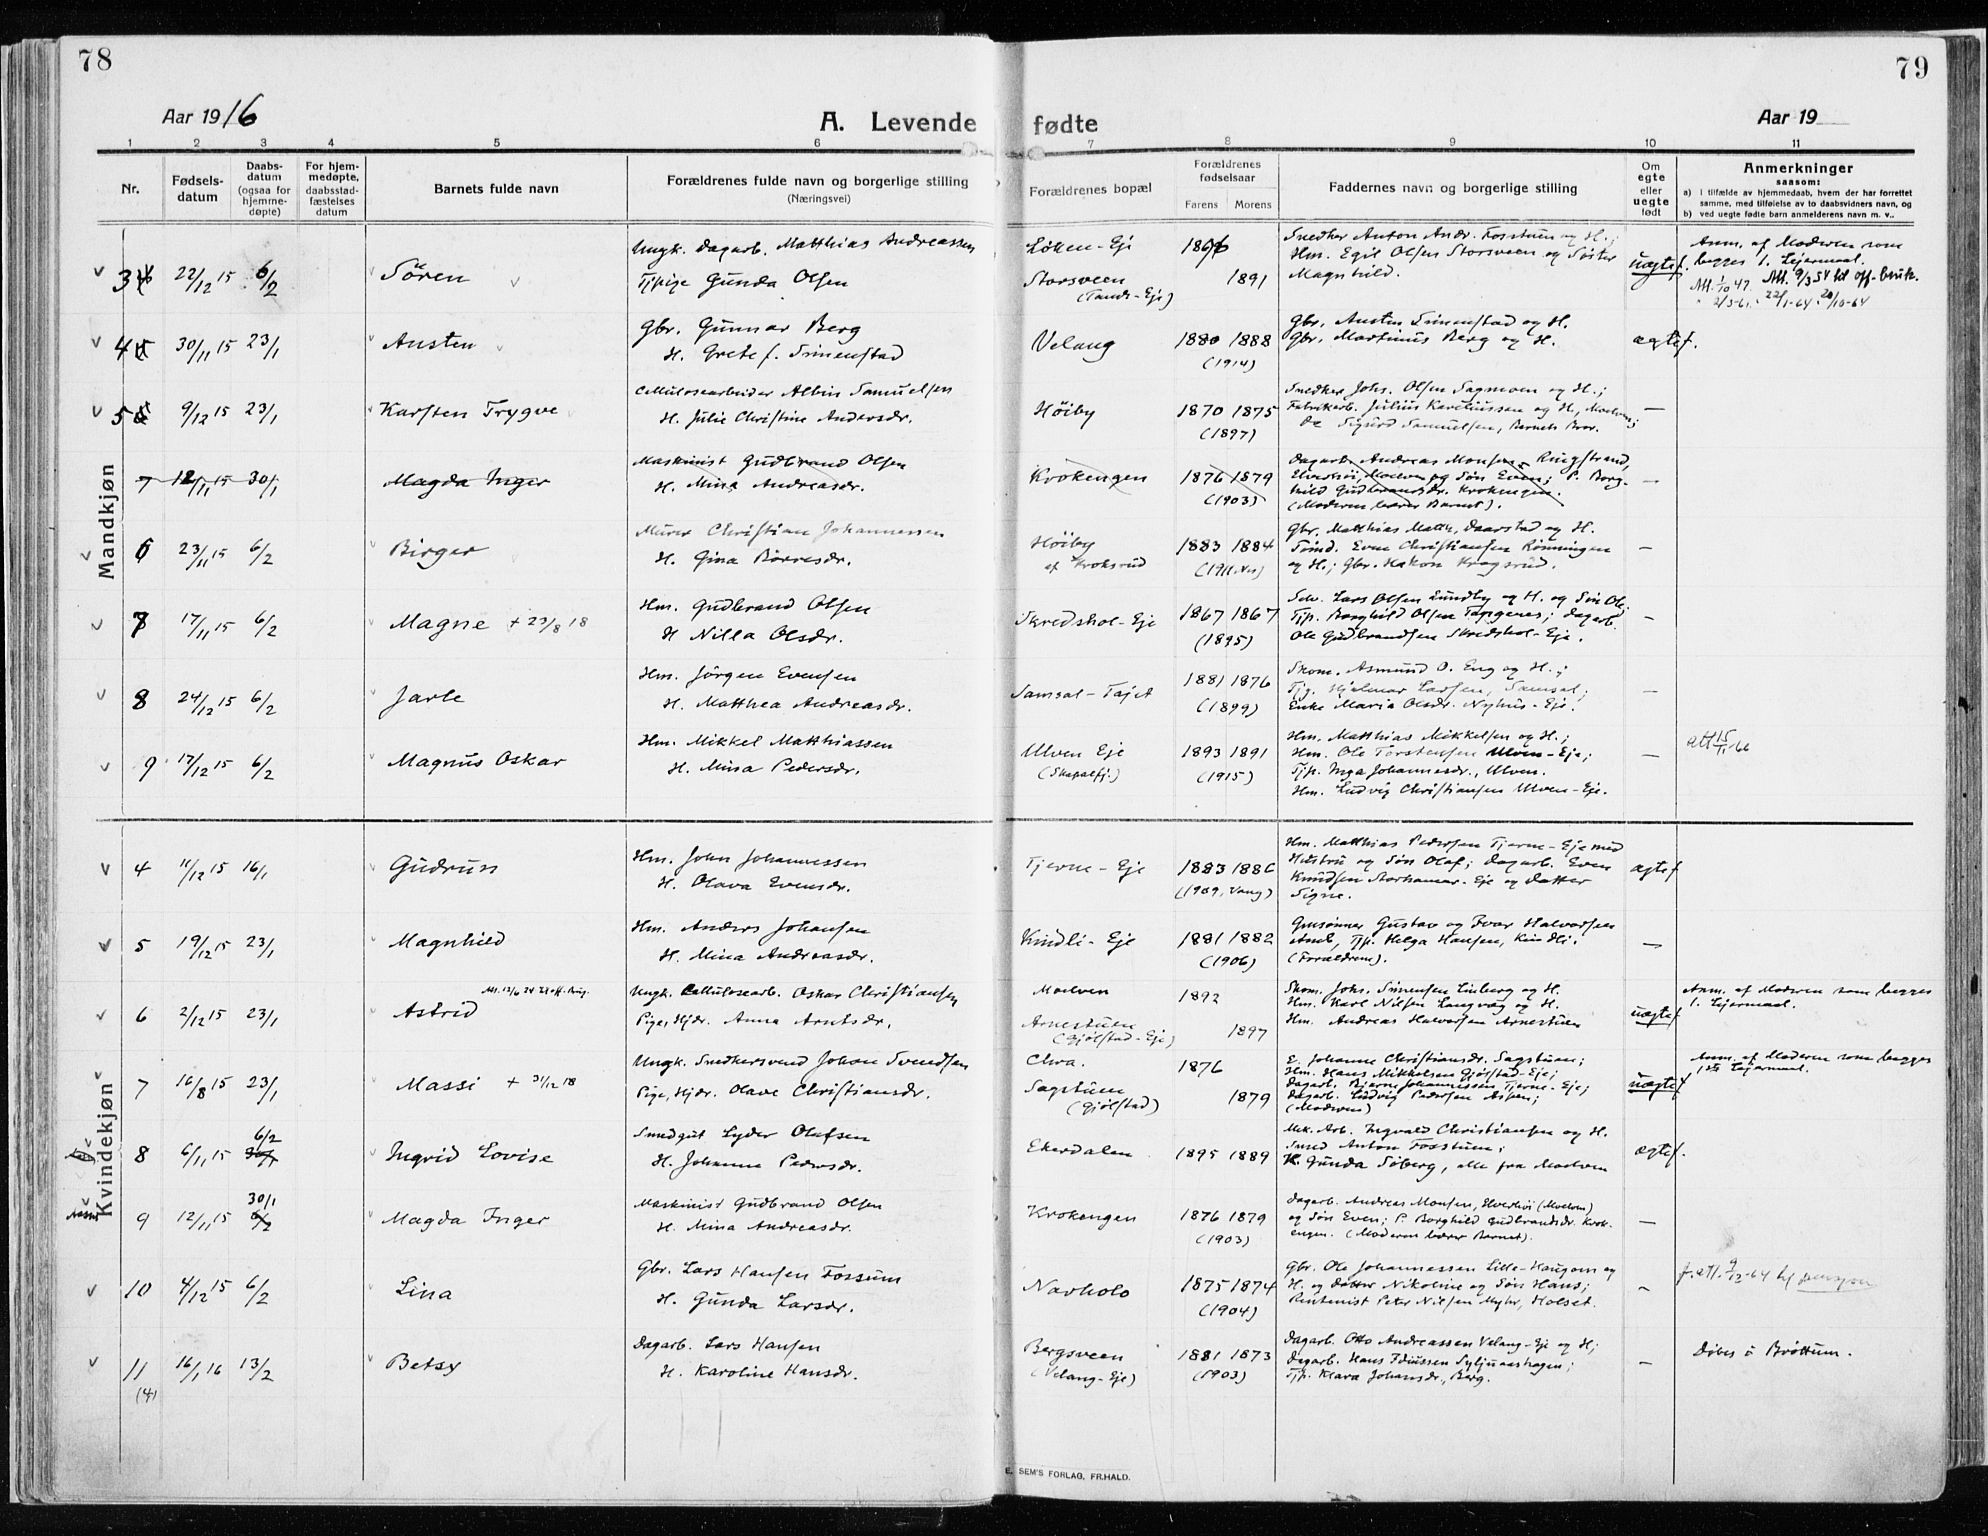 78
79
Aar 1916
A. Levende fødte
Aar 19
1 2 3 4 5 6 7 8 9 10 11
Nr.
Fødsels-datum
Daabs-datum (ogsaa for hjemme-døpte)
For hjem-medøpte, daabsstad-fæstelses datum
Barnets fulde navn
Forældrenes fulde navn og borgerlige stilling
(Næringsvei)
Forældrenes bopæl
Forældrenes fødselsaar
Farens Morens
Faddernes navn og borgerlige stilling
Om egte eller uegte født
Anmerkninger
saasom:
a) I tilfælde av hjemmedaab, hvem der har forrettet
samme, med tilføielse av to daabsvidners navn, og
b) ved uegte fødte barn anmelderens navn m. v..
Mandkjøn
3 22/12 15 6/2 Sören
Ungk. Dagarb. Matthias Andreassen
Tjpige Gunda Olsen
Löken-Eje
Storsveen
1891
Snedker Anton Andr. Fosstum og H.;
Hm. Egil Olsen Storsveen og Söster
Magnhild.
uægtef.
Anm. af Moderen som
begges 1. Lejermaal.
4 30/11 15 23/1 Austen
Gbr. Gunnar Berg
H. Grete f. Simenstad
Velang
1880 1888
(1914)
Gbr. Austen Simenstad og H.
Gbr. Martinus Berg og H.
ægtef.
5 9/12 15 23/1 Karsten Trygve
Cellulosearbeider Albin Samuelsen
H. Julie Christine Andersdr.
Höiby
1870 1875
(1897)
Snedker Johs. Olsen Sagmoen og H.;
Fabrikarb. Julius Kareliussen og H., Moelven;
Sigurd Samuelsen, Barnets Bror.
—
7 12/11 15 30/1 Magda Inger
Maskinist Gudbrand Olsen
H. Mina Andreasdr.
Krokengen
1876 1879
(1903)
Dagarb. Andreas Monsen, Ringstrand,
Elverhöi, Moelven og Sön Even; P. Borg-
hild Gudbrandsdr. Krokengen.
(Moderen bærer Barnet).
—
6 23/11 15 6/2 Birger
Murer Christian Johannessen
H. Gina Börresdr.
Höiby
af Kroksrud
1883 1884
Gbr. Matthias Matth. Daarstad og H.
Even Christiansen Rönningen
og H.; Gbr. Hakon Krogsrud.
—
7 17/11 15 6/2 Magne + 23/8 18
Hm. Gudbrand Olsen
H Nilla Olsdr.
Skredshol-Eje
1867 1867
(1895)
Lars Olsen Lundby og H. og Sön Ole.
Tjp. Borghild Olsen Tangenes; Dagarb.
Ole Gudbrandsen Skredshol-Eje.
—
8 24/12 15 6/2 Jarle
Hm. Jörgen Evensen
H. Matthea Andreasdr.
Samsal-Tajet
1881 1876
(1899)
Skom. Asmund O. Eng og H.;
Tjg. Hjalmar Larsen, Samsal;
Enke Maria Olsdr. Nyhus-Eje.
—
9 17/12 15 6/2 Magnus Oskar
Hm. Mikkel Matthiassen
H. Mina Pedersdr.
Ulven Eje
1893 1891
(1915)
Hm. Matthias Mikkelsen og H.;
Hm. Ole Torstensen Ulven-Eje;
Tjp. Inga Johannesdr., Ulven.
Hm. Ludvig Christiansen Ulven-Eje.
—
att 15/11-66
Kvindekjøn
4 11/12 15 16/1 Gudrun
Hm. John Johannessen
H. Olava Evensdr.
Tjerne-Eje
1883 1886
(1909, Vang)
Hm. Matthias Pedersen Tjerne-Eje med
Hustru og Sön Olaf; Dagarb. Even
Knudsen Storhamar-Eje og Datter
Signe.
ægtef
5 19/12 15 23/1 Magnhild
Hm. Anders Johansen
H. Mina Andreasdr.
Kindli-Eje
1881 1882
(1906)
Gustav og Ivar Halvorsen
Tjp. Helga Hansen, Kindli.
(Forældrene).
—
6 2/12 15 23/1 Astrid
Ungk. Cellulosearb. Oskar Christiansen
Pige, Hjdr. Anna Arntsdr.
Moelven
Arnestuen
(Gjölstad-Eje)
1892
1897
Skom. Johs. Simensen Linberg og H.
Hm. Karl Nilsen Langvæg og H.
Hm. Andreas Halvorsen Arnestuen
uægtef
Anm. af Moderen som begges
1. Lejermaal.
7 16/8 15 23/1 Massi + 31/12 18
Ungk. Snedkersvend Johan Svendsen
Pige, Hjdr. Olave Christiansdr.
Chra.
Sagstuen
(Gjölstad)
1876
1879
E. Johanne Christiansdr. Sagstuen;
Hm. Hans Mikkelsen Gjölstad-Eje;
Dagarb. Bjarne Johannessen Tjerne-Eje;
Dagarb. Ludvig Pedersen Aspen;
(Moderen)
uægtef
Anm. af Moderen som begges
1ste Lejermaal.
8 6/11 15 6/2 Ingrid Lovise
Smedgut Lyder Olafsen
H. Johanne Pedersdr.
Ekerdalen
1895 1889
Mek. Arb. Ingvald Christiansen og H.
Smed Anton Fosstum;
H. Gunda Söberg, alle fra Moelven
ægtef.
9 12/11 15 30/1 Magda Inger
Maskinist Gudbrand Olsen
H. Mina Andreasdr.
Krokengen
1876 1879
(1903)
Dagarb. Andreas Monsen, Elverhöi (Moelven)
og Sön Even; P. Borghild Gudbrandsdr. Krok-
engen. (Moderen bærer Barnet).
—
10 4/12 15 6/2 Lina
Gbr. Lars Hansen Fossum
H. Gunda Larsdr.
Navholo
1875 1874
(1904)
Gbr. Ole Johannessen Lille-Haugom og
H. og Datter Nikoline og Sön Hans;
Rentenist Peter Nilsen Myhr, Holset.
—
11 16/1 16 13/2 Betsy
(4)
Dagarb. Lars Hansen
H. Karoline Hansdr.
Bergsveen
(Velang-Eje)
1881 1873
(1903)
Dagarb. Otto Andreassen Velang-Eje og H;
Dagarb. Hans Syljuaashagen;
Tjp. Klara Johansdr., Berg.
—
Döbt i Bröttum.
E. SEM'S FORLAG, FR.HALD.